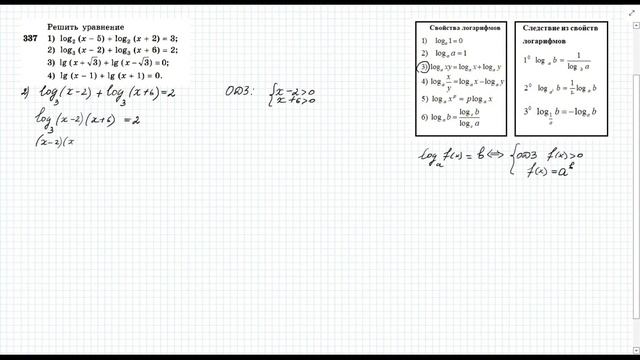 Решить уравнение
337 1) log₂ (x − 5) + log₂ (x + 2) = 3;
2) log₃ (x − 2) + log₃ (x + 6) = 2;
3) lg (x + √3) + lg (x − √3) = 0;
4) lg (x − 1) + lg (x + 1) = 0.
2) log₃(x-2) + log₃(x+6) = 2
ОДЗ: { x-2>0
x+6>0
log₃(x-2)(x+6) = 2
(x-2)(x
Свойства логарифмов
1) logₐ 1 = 0
2) logₐ a = 1
3) logₐ xy = logₐ x + logₐ y
4) logₐ x/y = logₐ x − logₐ y
5) logₐ xᵖ = p logₐ x
6) logₐ b = log_c b / log_c a
Следствие из свойств
логарифмов
1⁰ logₐ b = 1/log_b a
2⁰ logₐ b =
3⁰ log_{1/a} b = −logₐ b
logₐ f(x) = b ⟺ { ОДЗ f(x)>0
f(x) = aᵇ